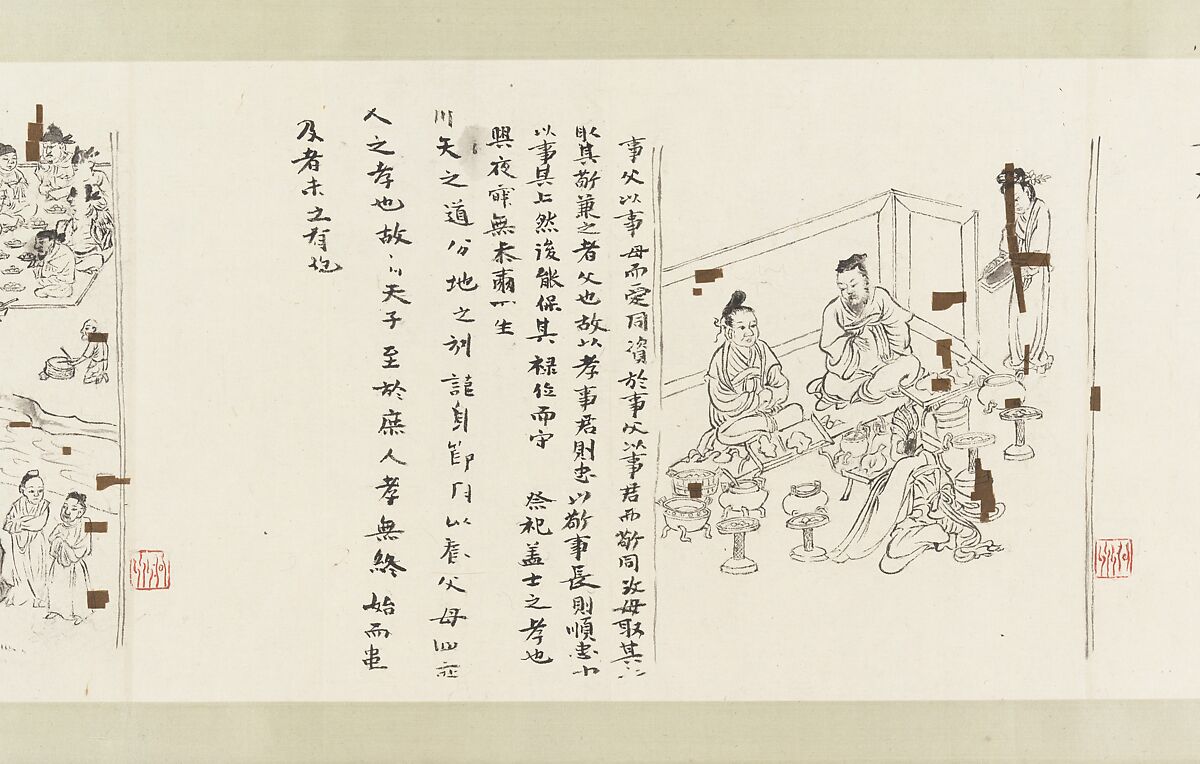 事父以事母而愛同資於事父以事君而敬同故母取其
取其敬兼之者父也故以孝事君則忠以敬事長則順忠
以事其上然後能保其祿位而守 祭祀蓋士之孝也
興夜寐無忝爾所生
天之道分地之利謹身節用以養父母
人之孝也故 天子至於庶人孝無終始而患
及者未之有也